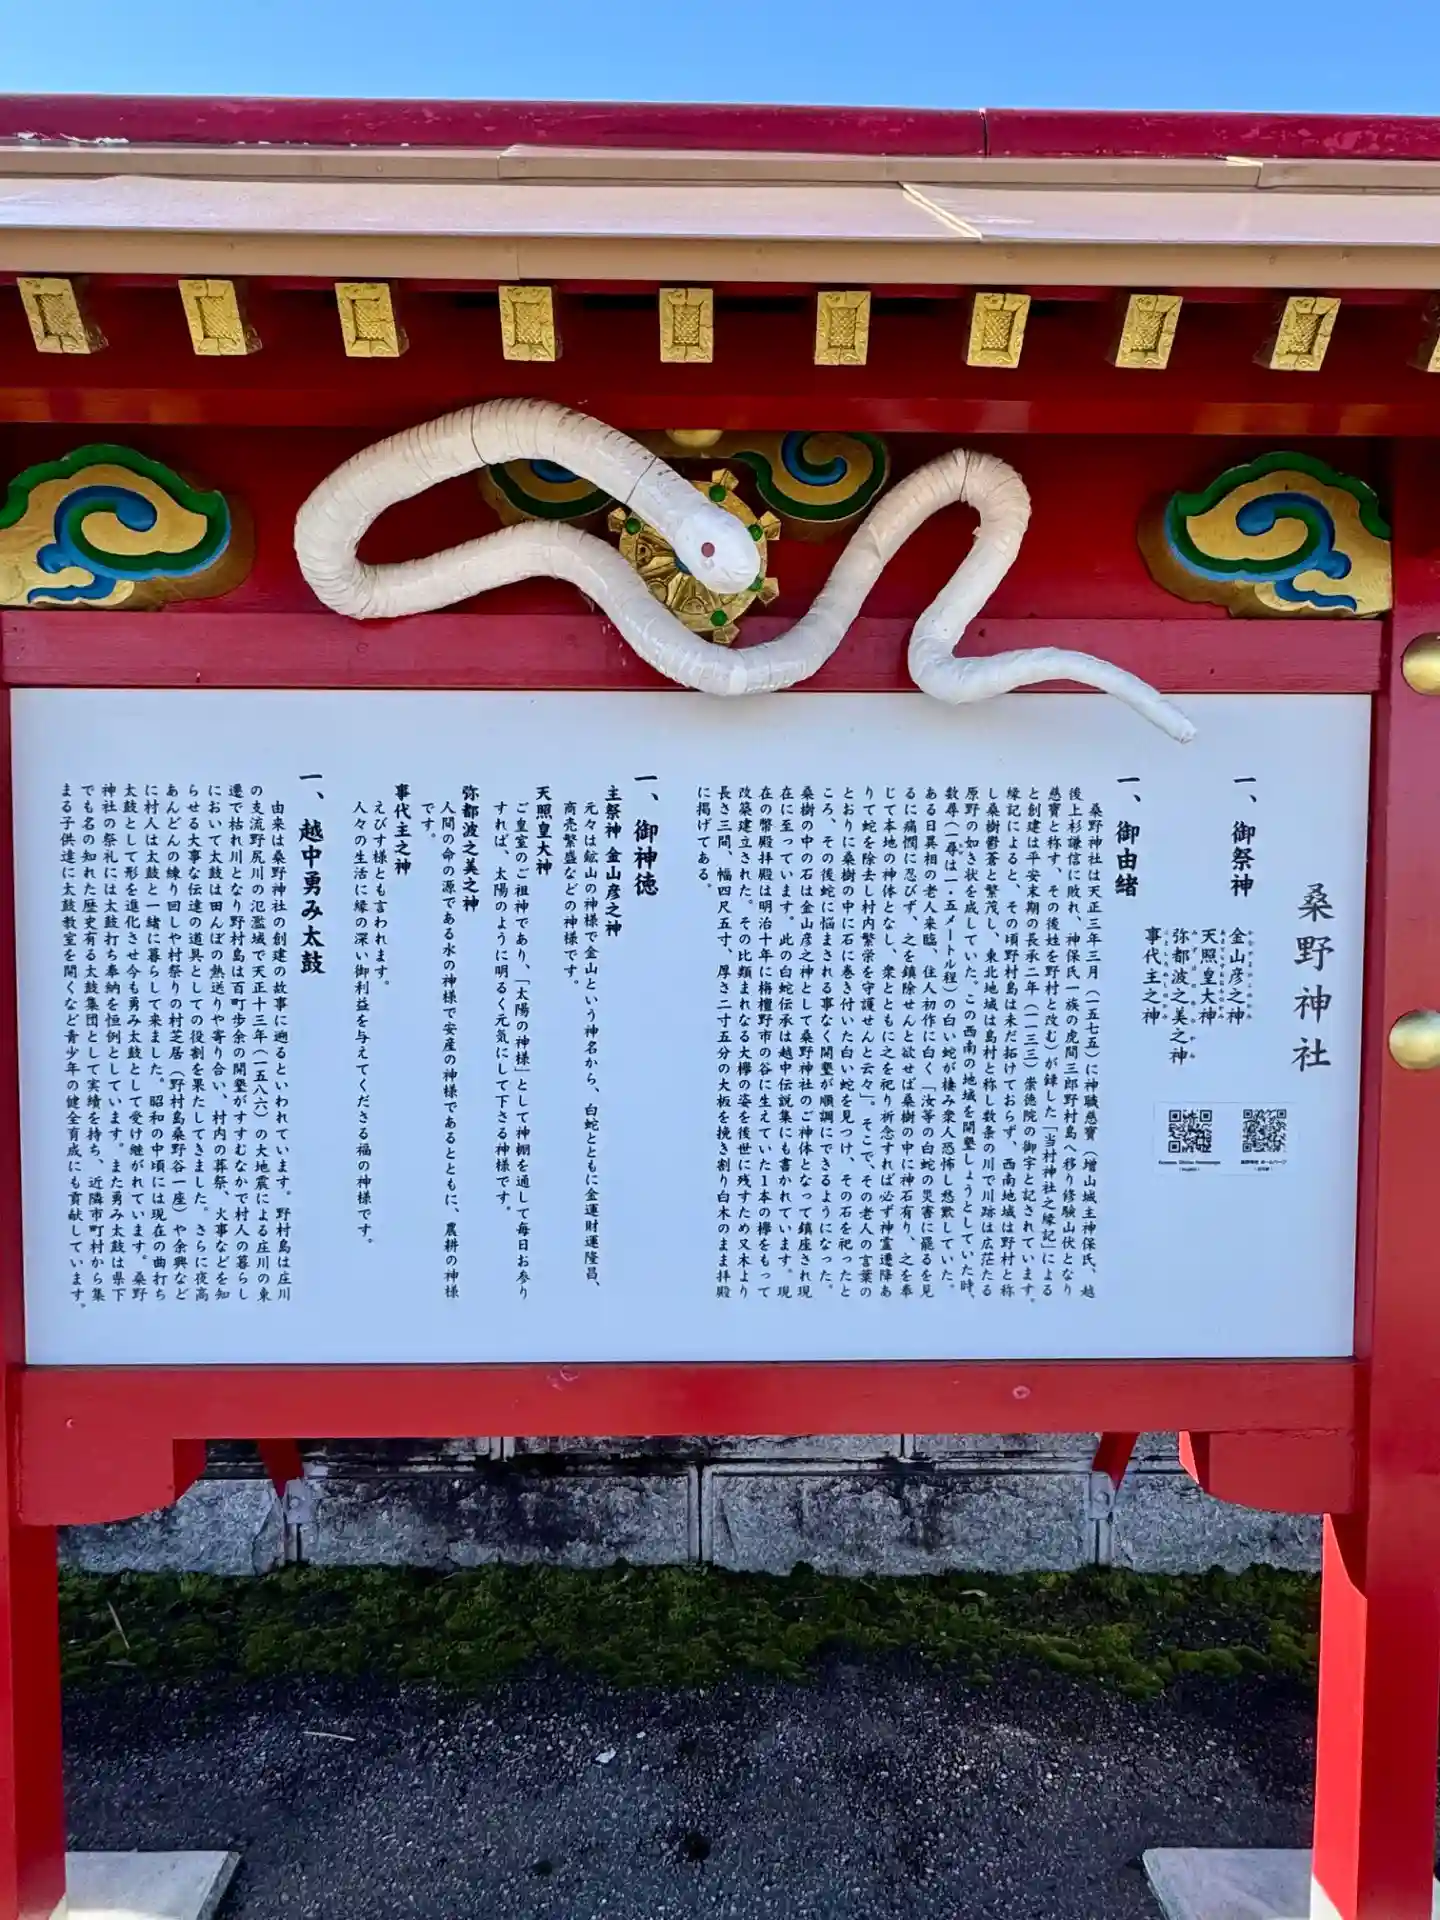 桑野神社
一、御祭神
金山彦之神
天照皇大神
弥都波之美之神
事代主之神
一、御由緒
桑野神社は天正三年三月（一五七五）に神職慈寶（増山城主神保氏、越
後上杉謙信に敗れ、神保氏一族の虎間三郎野村島へ移り修験山伏となり
慈寶と称す、その後姓を野村と改む）が録した「当村神社之縁記」による
と創建は平安末期の長承二年（一一三三）崇徳院の御宇と記されています。
縁記によると、その頃野村島は未だ拓けておらず、西南地域は野村と称
し桑樹鬱蒼と繁茂し、東北地域は島村と称し数条の川で川跡は広茫たる
原野の如き状を成していた。この西南の地域を開墾しょうとしていた時、
数尋（一尋は一・五メートル程）の白い蛇が棲み衆人恐怖し愁歎していた。
ある日異相の老人来臨、住人初作に白く「汝等の白蛇の災害に罹るを見
るに痛憫に忍びず、之を鎮除せんと欲せば桑樹の中に神石有り、之を奉
じて本地の神体となし、衆とともに之を祀り祈念すれば必ず神霊遷降あ
りて蛇を除去し村内繁栄を守護せんと云々」。そこで、その老人の言葉の
とおりに桑樹の中に石に巻き付いた白い蛇を見つけ、その石を祀ったと
ころ、その後蛇に悩まされる事なく開墾が順調にできるようになった。
桑樹の中の石は金山彦之神として桑野神社のご神体となって鎮座され現
在に至っています。此の白蛇伝承は越中伝説集にも書かれています。現
在の幣殿拝殿は明治十年に栴檀野市の谷に生えていた1本の欅をもって
改築建立された。その比類まれなる大欅の姿を後世に残すため又木より
長さ三間、幅四尺五寸、厚さ二寸五分の大板を挽き割り白木のまま拝殿
に掲げてある。
一、御神徳
主祭神 金山彦之神
元々は鉱山の神様で金山という神名から、白蛇とともに金運財運隆昌、
商売繁盛などの神様です。
天照皇大神
ご皇室のご祖神であり、「太陽の神様」として神棚を通して毎日お参り
すれば、太陽のように明るく元気にして下さる神様です。
弥都波之美之神
人間の命の源である水の神様で安産の神様であるとともに、農耕の神様
です。
事代主之神
えびす様とも言われます。
人々の生活に縁の深い御利益を与えてくださる福の神様です。
一、越中勇み太鼓
由来は桑野神社の創建の故事に遡るといわれています。野村島は庄川
の支流野尻川の氾濫域で天正十三年（一五八六）の大地震による庄川の東
遷で枯れ川となり野村島は百町歩余の開墾がすすむなかで村人の暮らし
において太鼓は田んぼの熱送りや寄り合い、村内の葬祭、火事などを知
らせる大事な伝達の道具としての役割を果たしてきました。さらに夜高
あんどんの練り回しや村祭りの村芝居（野村島桑野谷一座）や余興など
に村人は太鼓と一緒に暮らして来ました。昭和の中頃には現在の曲打ち
太鼓として形を進化させ今も勇み太鼓として受け継がれています。桑野
神社の祭礼には太鼓打ち奉納を恒例としています。また勇み太鼓は県下
でも名の知れた歴史有る太鼓集団として実績を持ち、近隣市町村から集
まる子供達に太鼓教室を開くなど青少年の健全育成にも貢献しています。